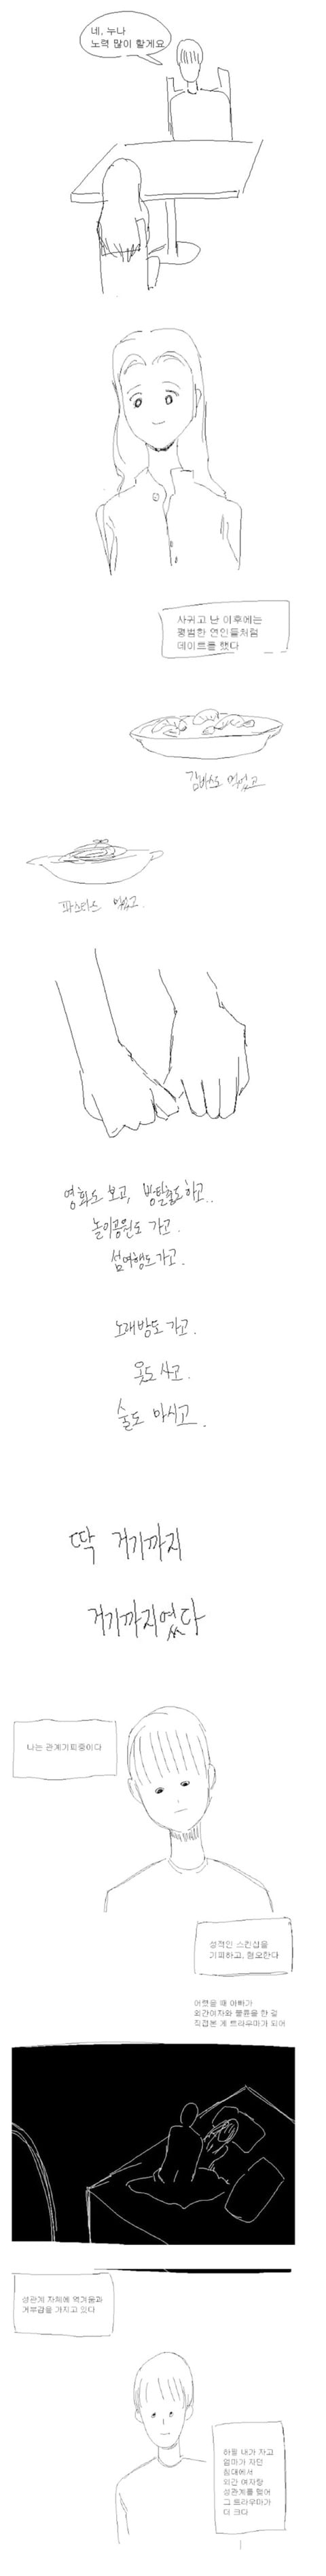 네, 누나
노력 많이 할게요
사귀고 난 이후에는
평범한 연인들처럼
데이트를 했다
감바스도 먹었고
파스타도 먹었고.
영화도 보고, 방탈출도하고..
놀이공원도 가고.
섬여행도가고.
노래방도 가고.
옷도 사고.
술도 마시고.
딱 거기까지
거기까지였다
나는 관계기피증이다
성적인 스킨십을
기피하고, 혐오한다
어렸을 때 아빠가
외간여자와 불륜을 한 걸
직접본 게 트라우마가 되어
성관계 자체에 역겨움과
거부감을 가지고 있다
하필 내가 자고
엄마가 자던
침대에서
외간 여자랑
성관계를 했어
그 트라우마가
더 크다